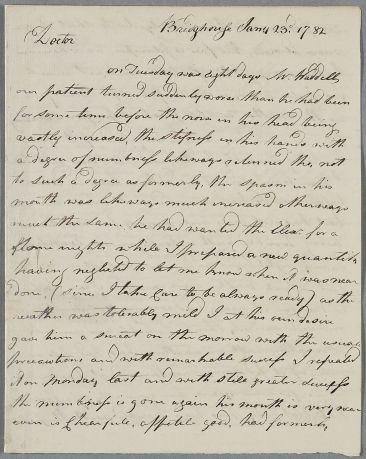 Bridghouse Jany 23d. 1782
Doctor
on Tuesday was eight days Mr. Waddell
our patient turned suddenly worse than he had been
for some time before the noise in his head being
vastly increased, the stifness in his hands with
a degree of numbness likeways returned tho, not
to such a degree as formerly, the spasm in his
mouth was likeways much increased otherways
much the same. he had wanted the Elect for a
few nights while I prepared a new quantity
having neglected to let me know when it was near
done, (since I take care to be always ready) as the
weather was tolerably mild I at his own desire
gave him a sweat on the morrow with the usual
precautions and with remarkable success I repeated
it on Monday last and with still greater success
the numbness is gone again his mouth is very near
even is Chearfull, appetite good, had formerly